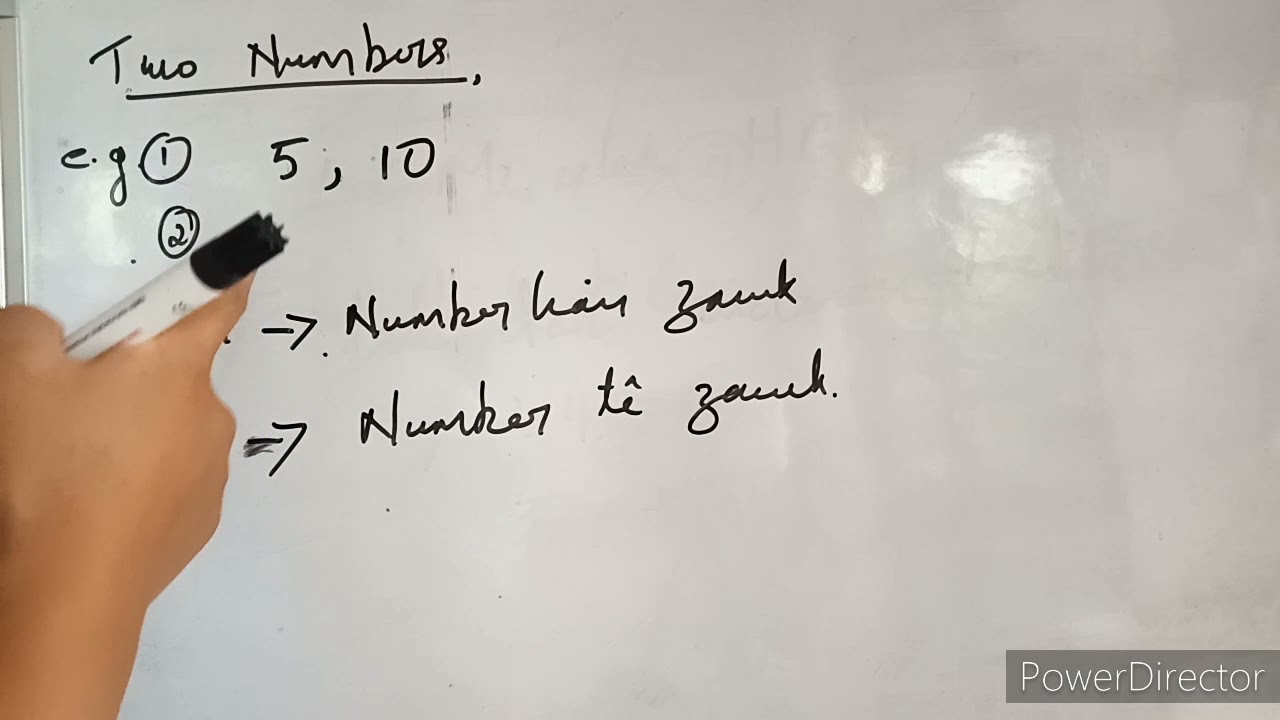 Two Numbers.
e.g ① 5, 10
②
→ Number lian zawk
⇒ Number tê zawk.
PowerDirector